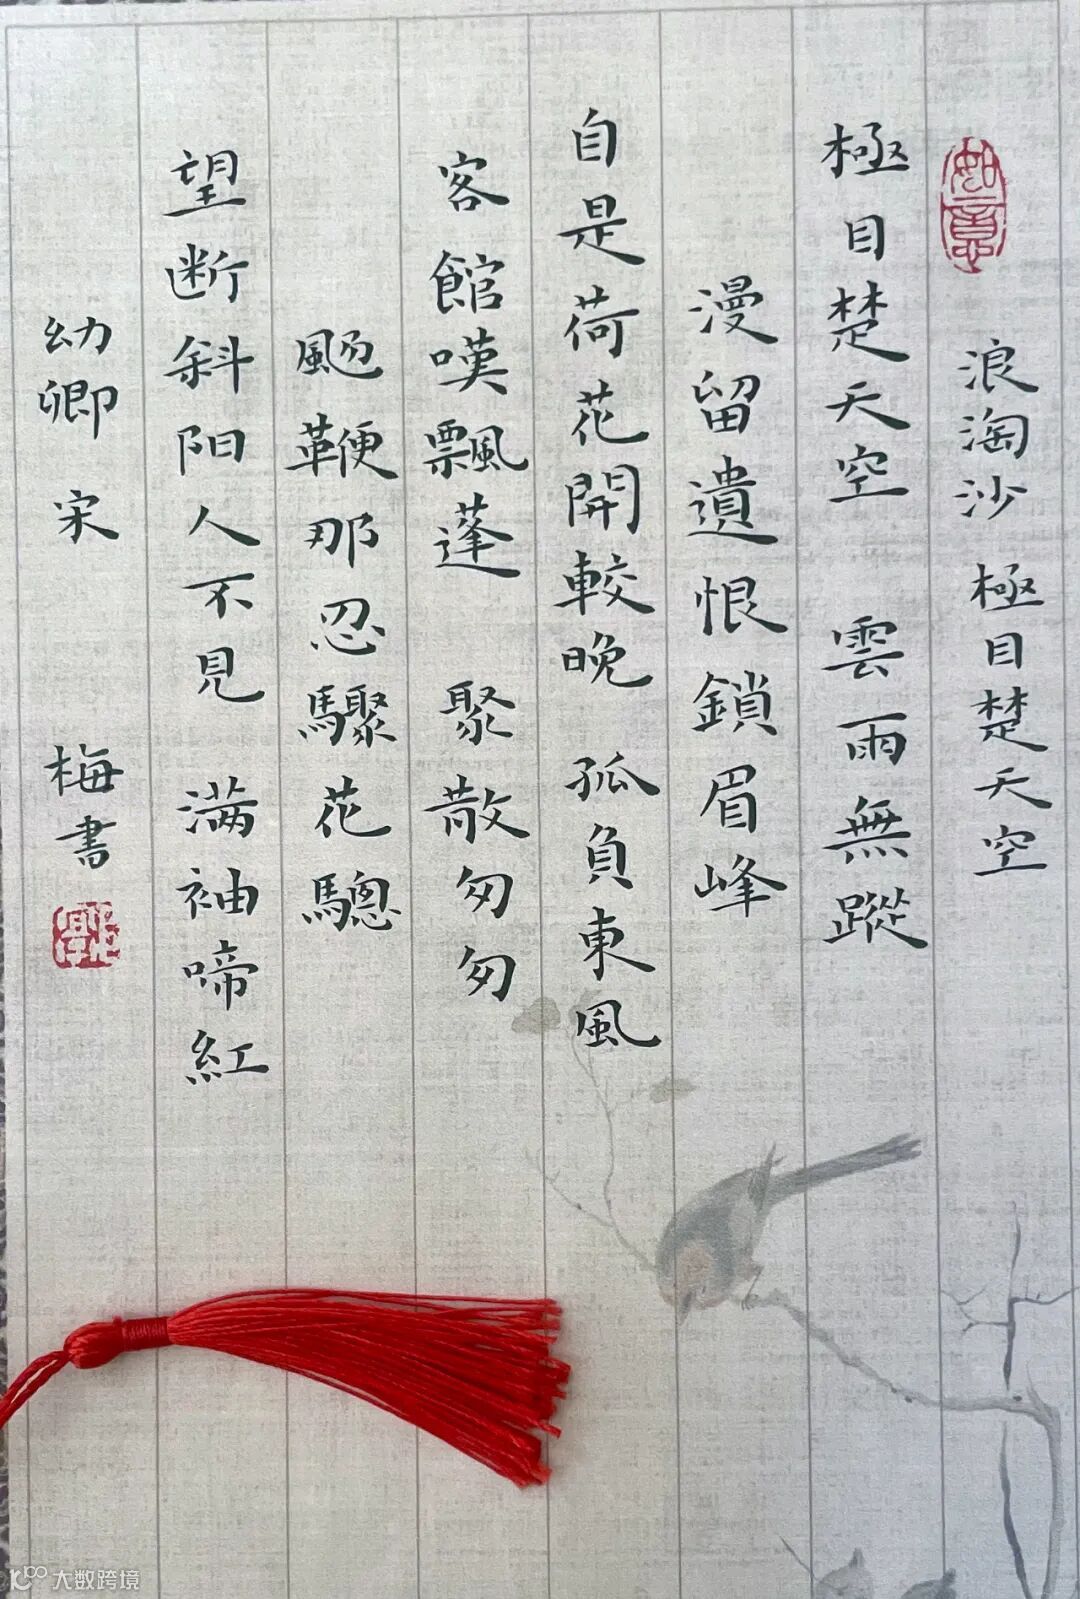 如意
浪淘沙 極目楚天空
極目楚天空 雲雨無蹤
漫留遺恨鎖眉峰
自是荷花開較晚 孤負東風
客館嘆飄蓬 聚散匆匆
颺鞭那忍驟花驄
望断斜阳人不見 满袖啼紅
幼卿 宋 梅書
大数跨境